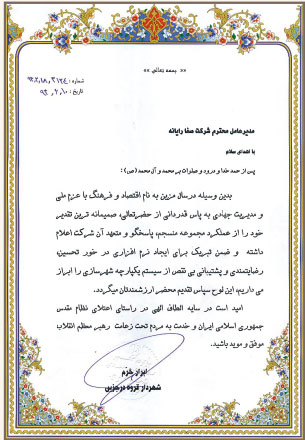 « بسمه تعالی »
شماره: ۹۳،۲،۱۸،۳۱۲۴
تاریخ: ۹۳،۲،۱۰
مدیرعامل محترم شرکت صفا رایانه
با اهدای سلام
پس از حمد خدا و درود و صلوات بر محمد و آل محمد (ص) :
بدین وسیله در سال مزین به نام اقتصاد و فرهنگ با عزم ملی
و مدیریت جهادی به پاس قدردانی از حضرتعالی، صمیمانه ترین تقدیر
خود را از عملکرد مجموعه منسجم، پاسخگو و متعهد آن شرکت اعلام
داشته و ضمن تبریک برای ایجاد نرم افزاری در خور تحسین،
رضایتمندی و پشتیبانی بی نقص از سیستم یکپارچه شهرسازی را ابراز
می داریم، این لوح سپاس تقدیم محضر ارزشمندتان میگردد.
امید است در سایه الطاف الهی در راستای اعتلای نظام مقدس
جمهوری اسلامی ایران و خدمت به مردم تحت زعامت رهبر معظم انقلاب
موفق و موید باشید.
ابراز حزم
شهردار قروه درجزین